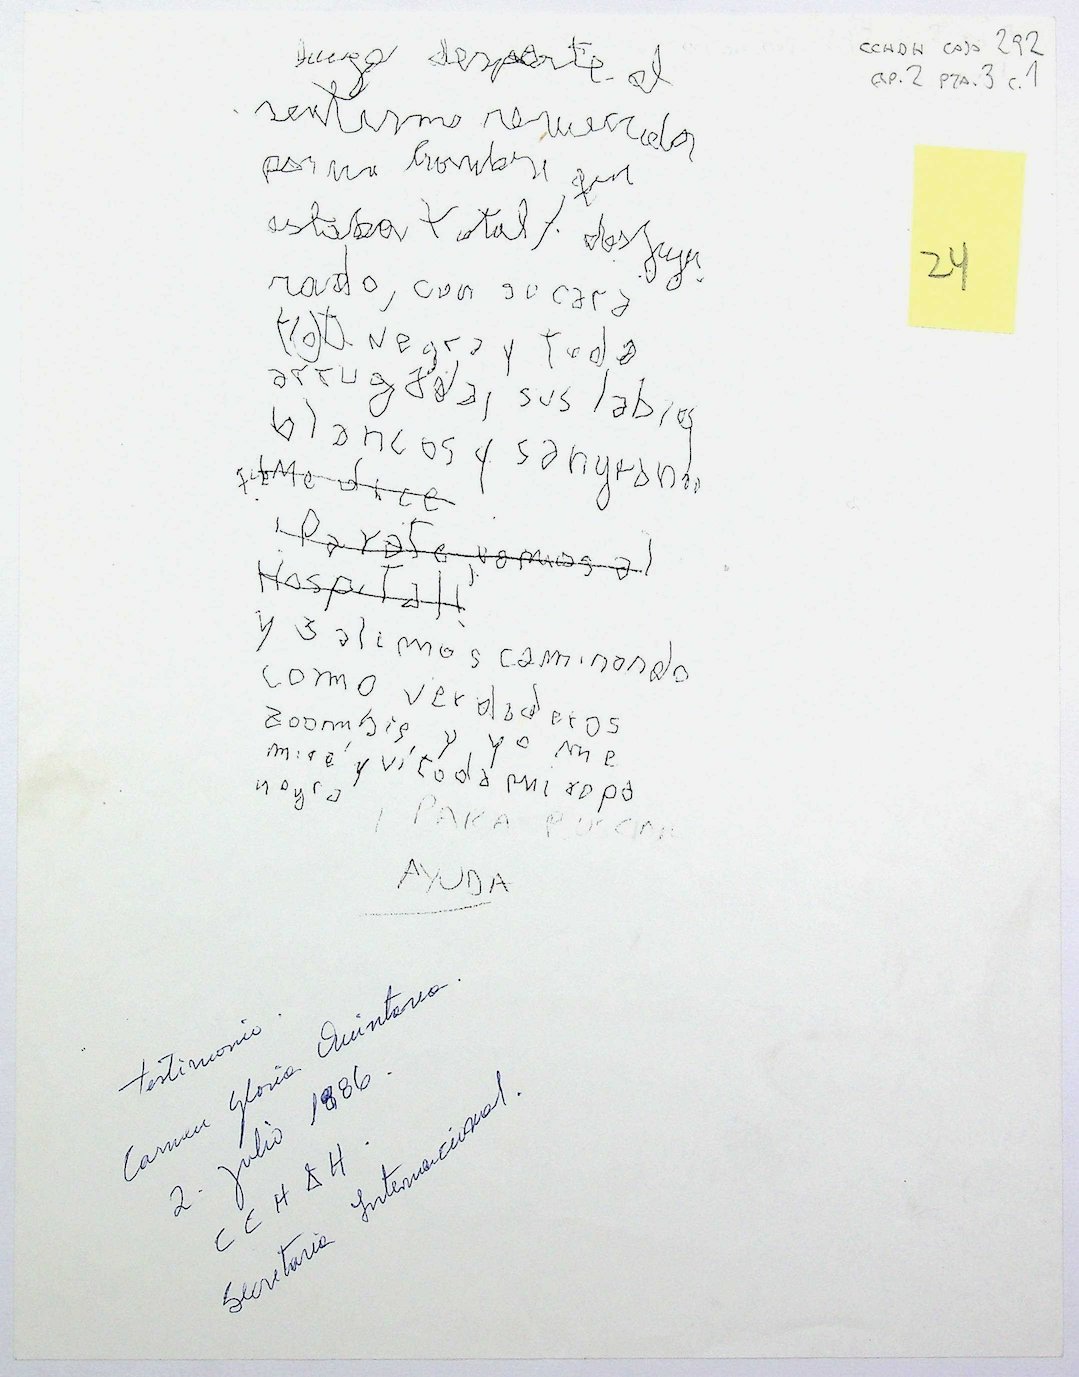 CCHDH CAJA 292
CP.2 PZA.3 C.1
24
luego desperte al
sentirme remecida
por un hombre que
estaba total/. desfigu
rado, con su cara
negra y toda
arrugada, sus labios
blancos y sangrand
Me dice
"Parate, vamos al
Hospital"
y salimos caminando
como verdaderos
zoombis y yo me
miré y ví toda mi ropa
negra
PARA BUSCAR
AYUDA
testimonio.
Carmen Gloria Quintana.
2. Julio 1986.
CCHDH.
Secretaria Internacional.